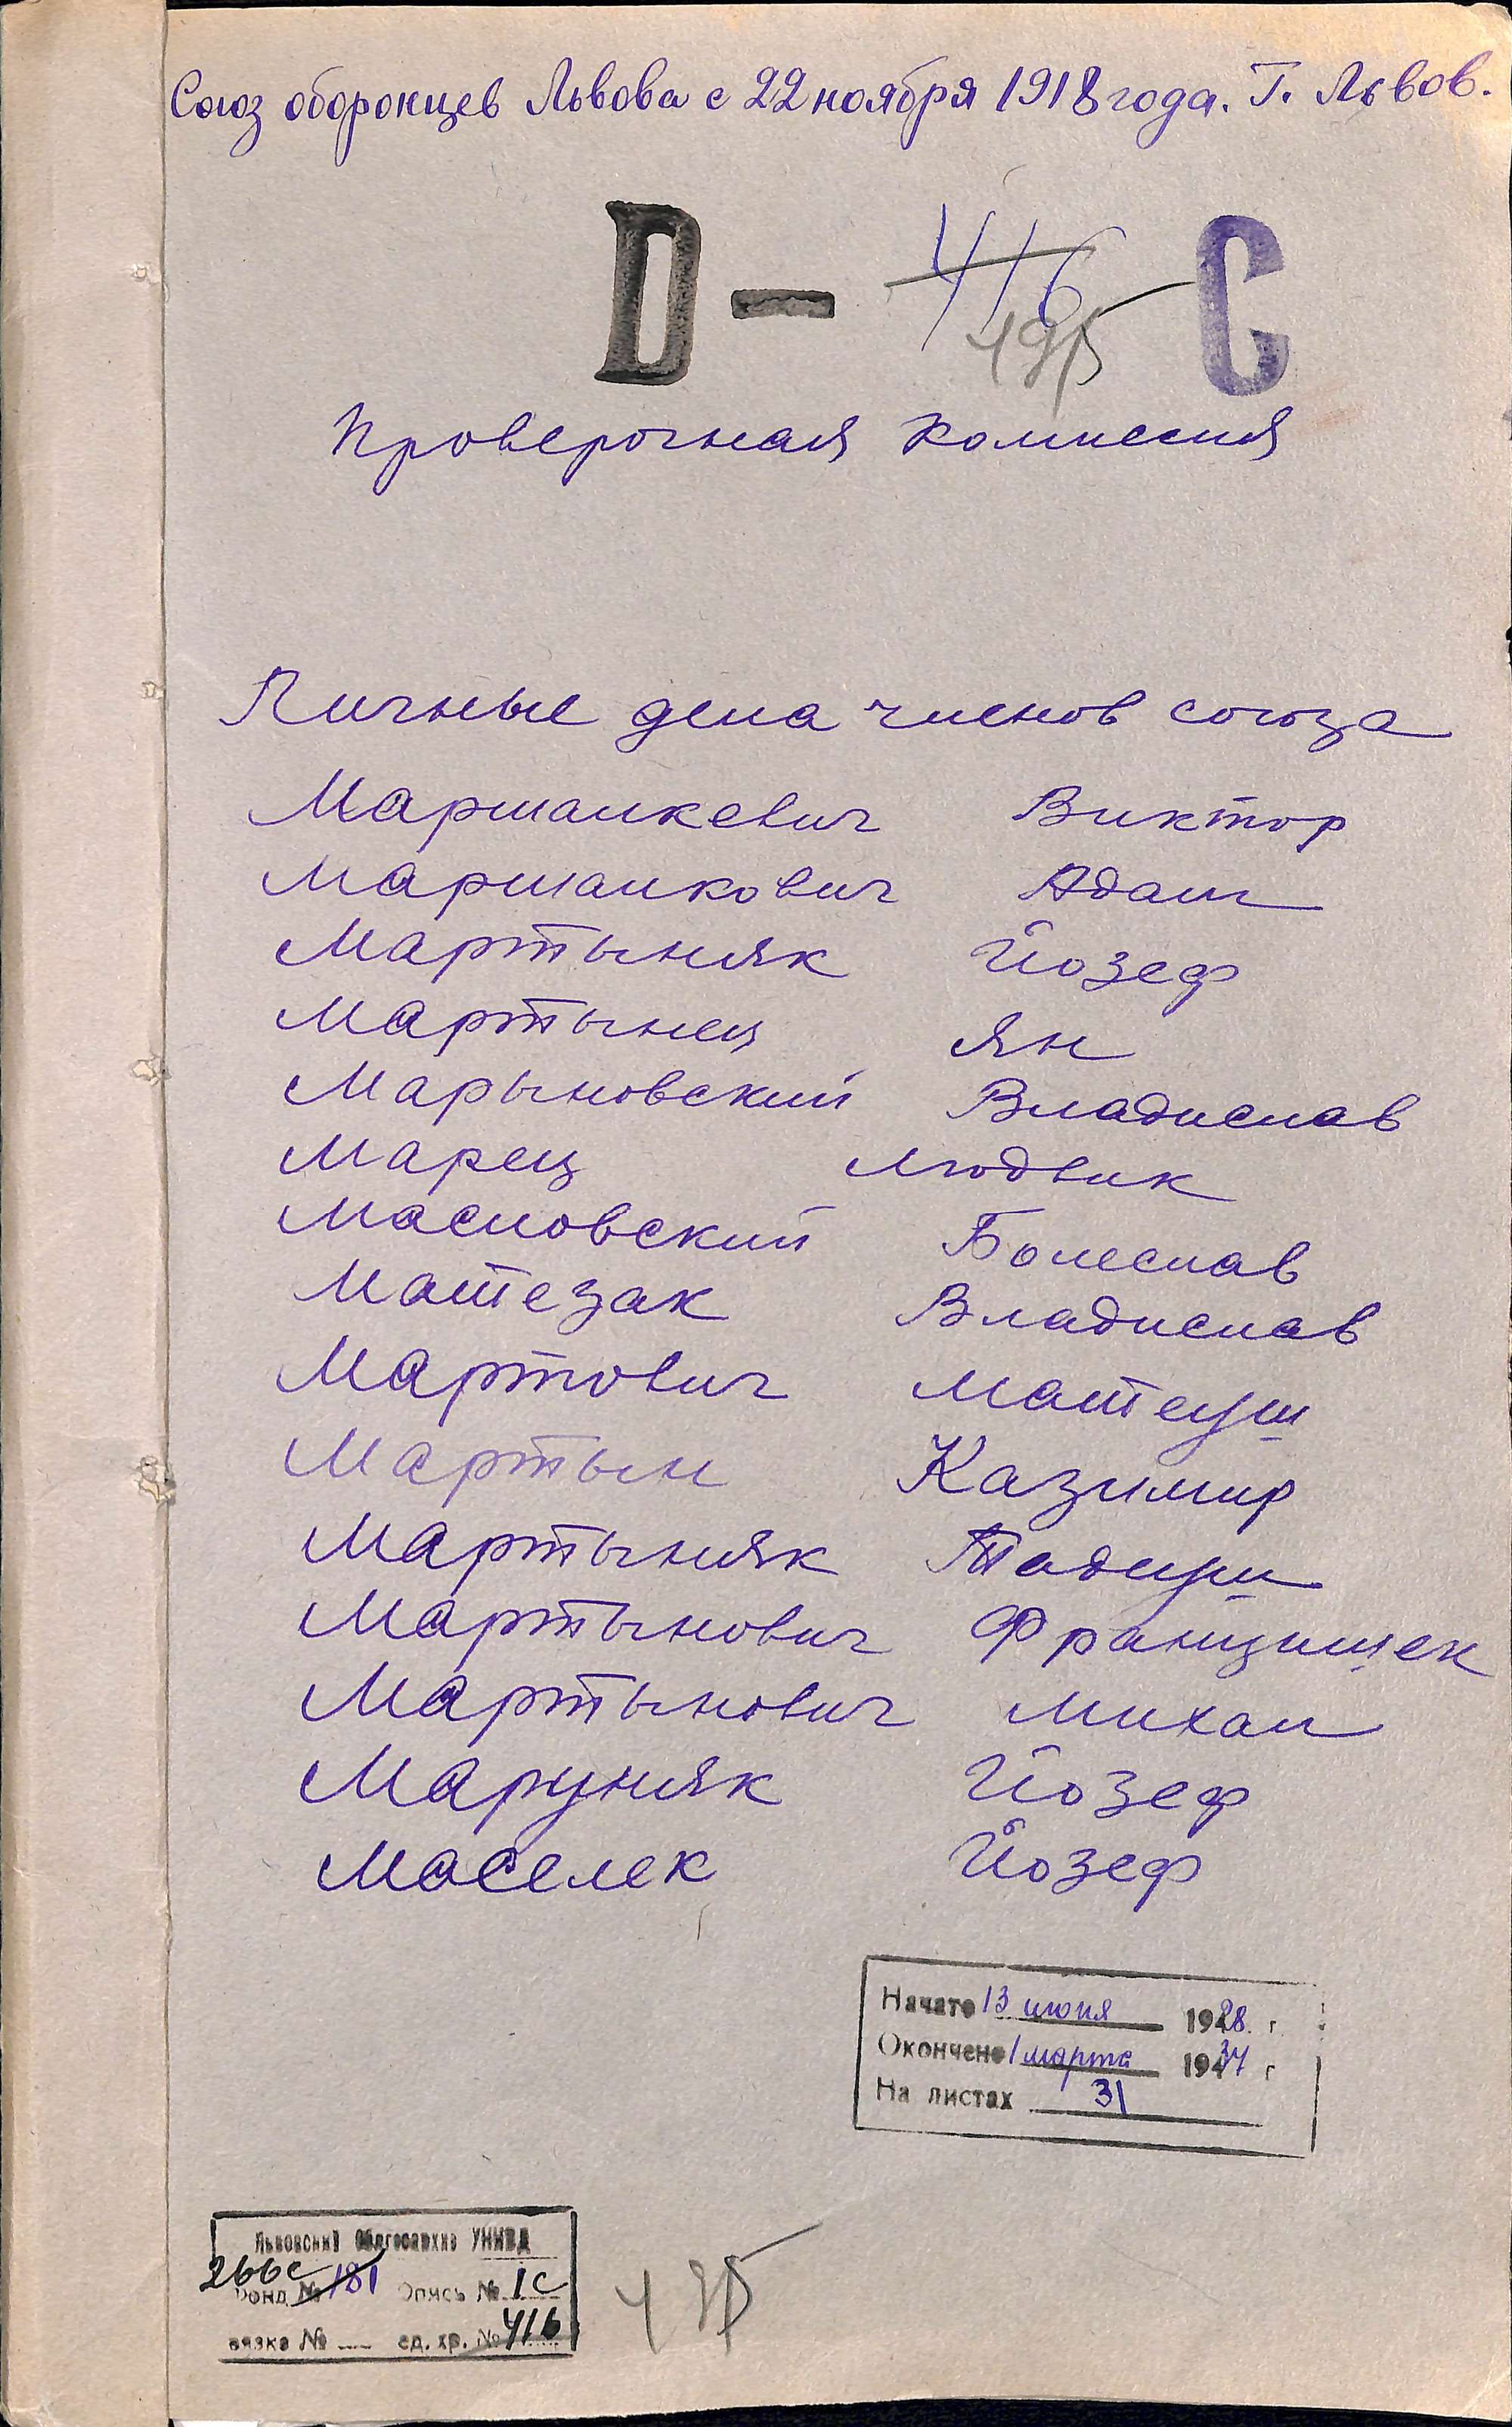 Союз оборонцев Львова с 22 ноября 1918 года. Г. Львов.
D – 416 С
495
Проверочная комиссия
Личные дела членов союза
Маршалкевич Виктор
Маршалкович Адам
Мартыняк Йозеф
Мартынец Ян
Марыновский Владислав
Марец Людвик
Масловский Болеслав
Матезак Владислав
Мартович Матеуш
Мартын Казимир
Мартыняк Тадеуш
Мартынович Францишек
Мартынович Михал
Маруняк Йозеф
Маселек Йозеф
Начато 13 июля 1928 г.
Окончено 1 марта 1934 г
На листах 31
Львовский Облгосархив УНКВД
266с Фонд № 181 Опись № 1с
вязка № ед. хр. № 416
495